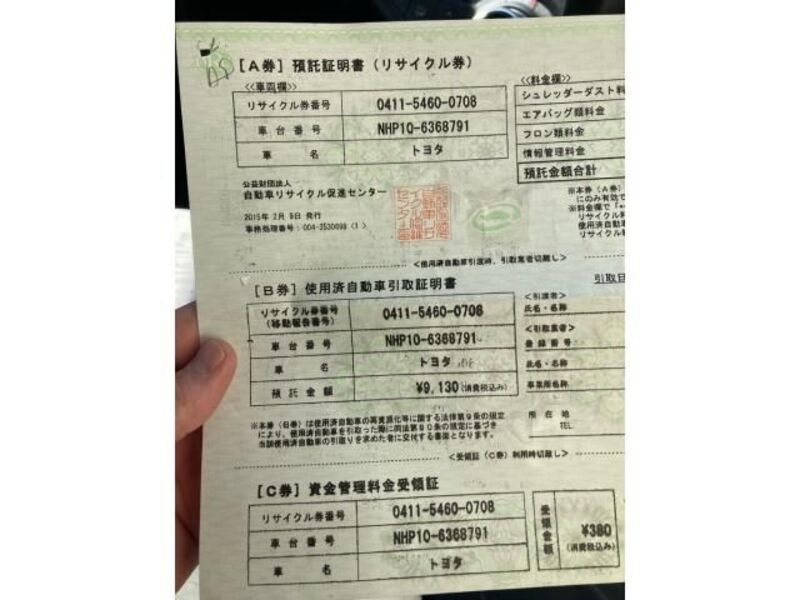 [A券] 預託証明書(リサイクル券)
<<車両欄>>
リサイクル券番号 0411-5460-0708
車台番号 NHP10-6368791
車名 トヨタ
<<料金欄>>
シュレッダーダスト料
エアバッグ類料金
フロン類料金
情報管理料金
預託金額合計
公益財団法人
自動車リサイクル促進センター
2015年 2月 9日 発行
事務処理番号:004-3530699 (1)
※本券(A券)
にのみ有効で
※料金欄で
リサイクル料
使用済自動車
リサイクル
<使用済自動車引渡時、引取業者切離し>
[B券] 使用済自動車引取証明書
引取日
リサイクル券番号
(移動報告番号) 0411-5460-0708
車台番号 NHP10-6368791
車名 トヨタ
預託金額 ¥9,130(消費税込み)
<引渡者>
氏名・名称
<引取業者>
登録番号
氏名・名称
事業所名称
所在地
TEL
※本券(B券)は使用済自動車の再資源化等に関する法律第9条の規定
により、使用済自動車を引取った際に同法第80条の規定に基づき
当該使用済自動車の引取りを求めた者に交付する書面となります。
<受領証(C券)利用時切離し>
[C券] 資金管理料金受領証
リサイクル券番号 0411-5460-0708
車台番号 NHP10-6368791
車名 トヨタ
受領金額 ¥380
(消費税込み)